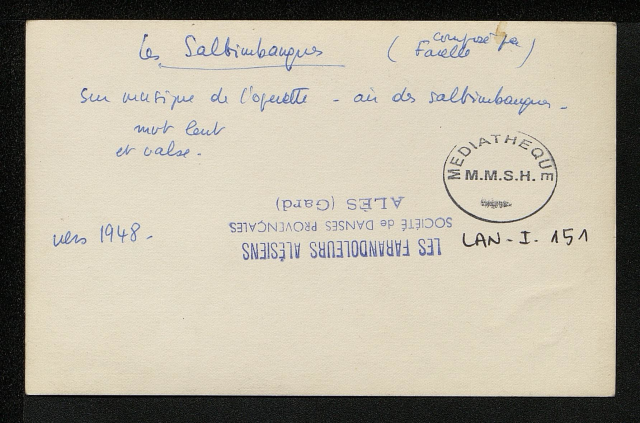 Les Saltimbanques (composé par Farelle)
sur musique de l'opérette - air des saltimbanques -
mvt lent
et valse.
vers 1948 -
MEDIATHEQUE
M.M.S.H.
LES FARANDOLEURS ALÉSIENS
SOCIÉTÉ de DANSES PROVENÇALES
ALÈS (Gard)
LAN - I. 151